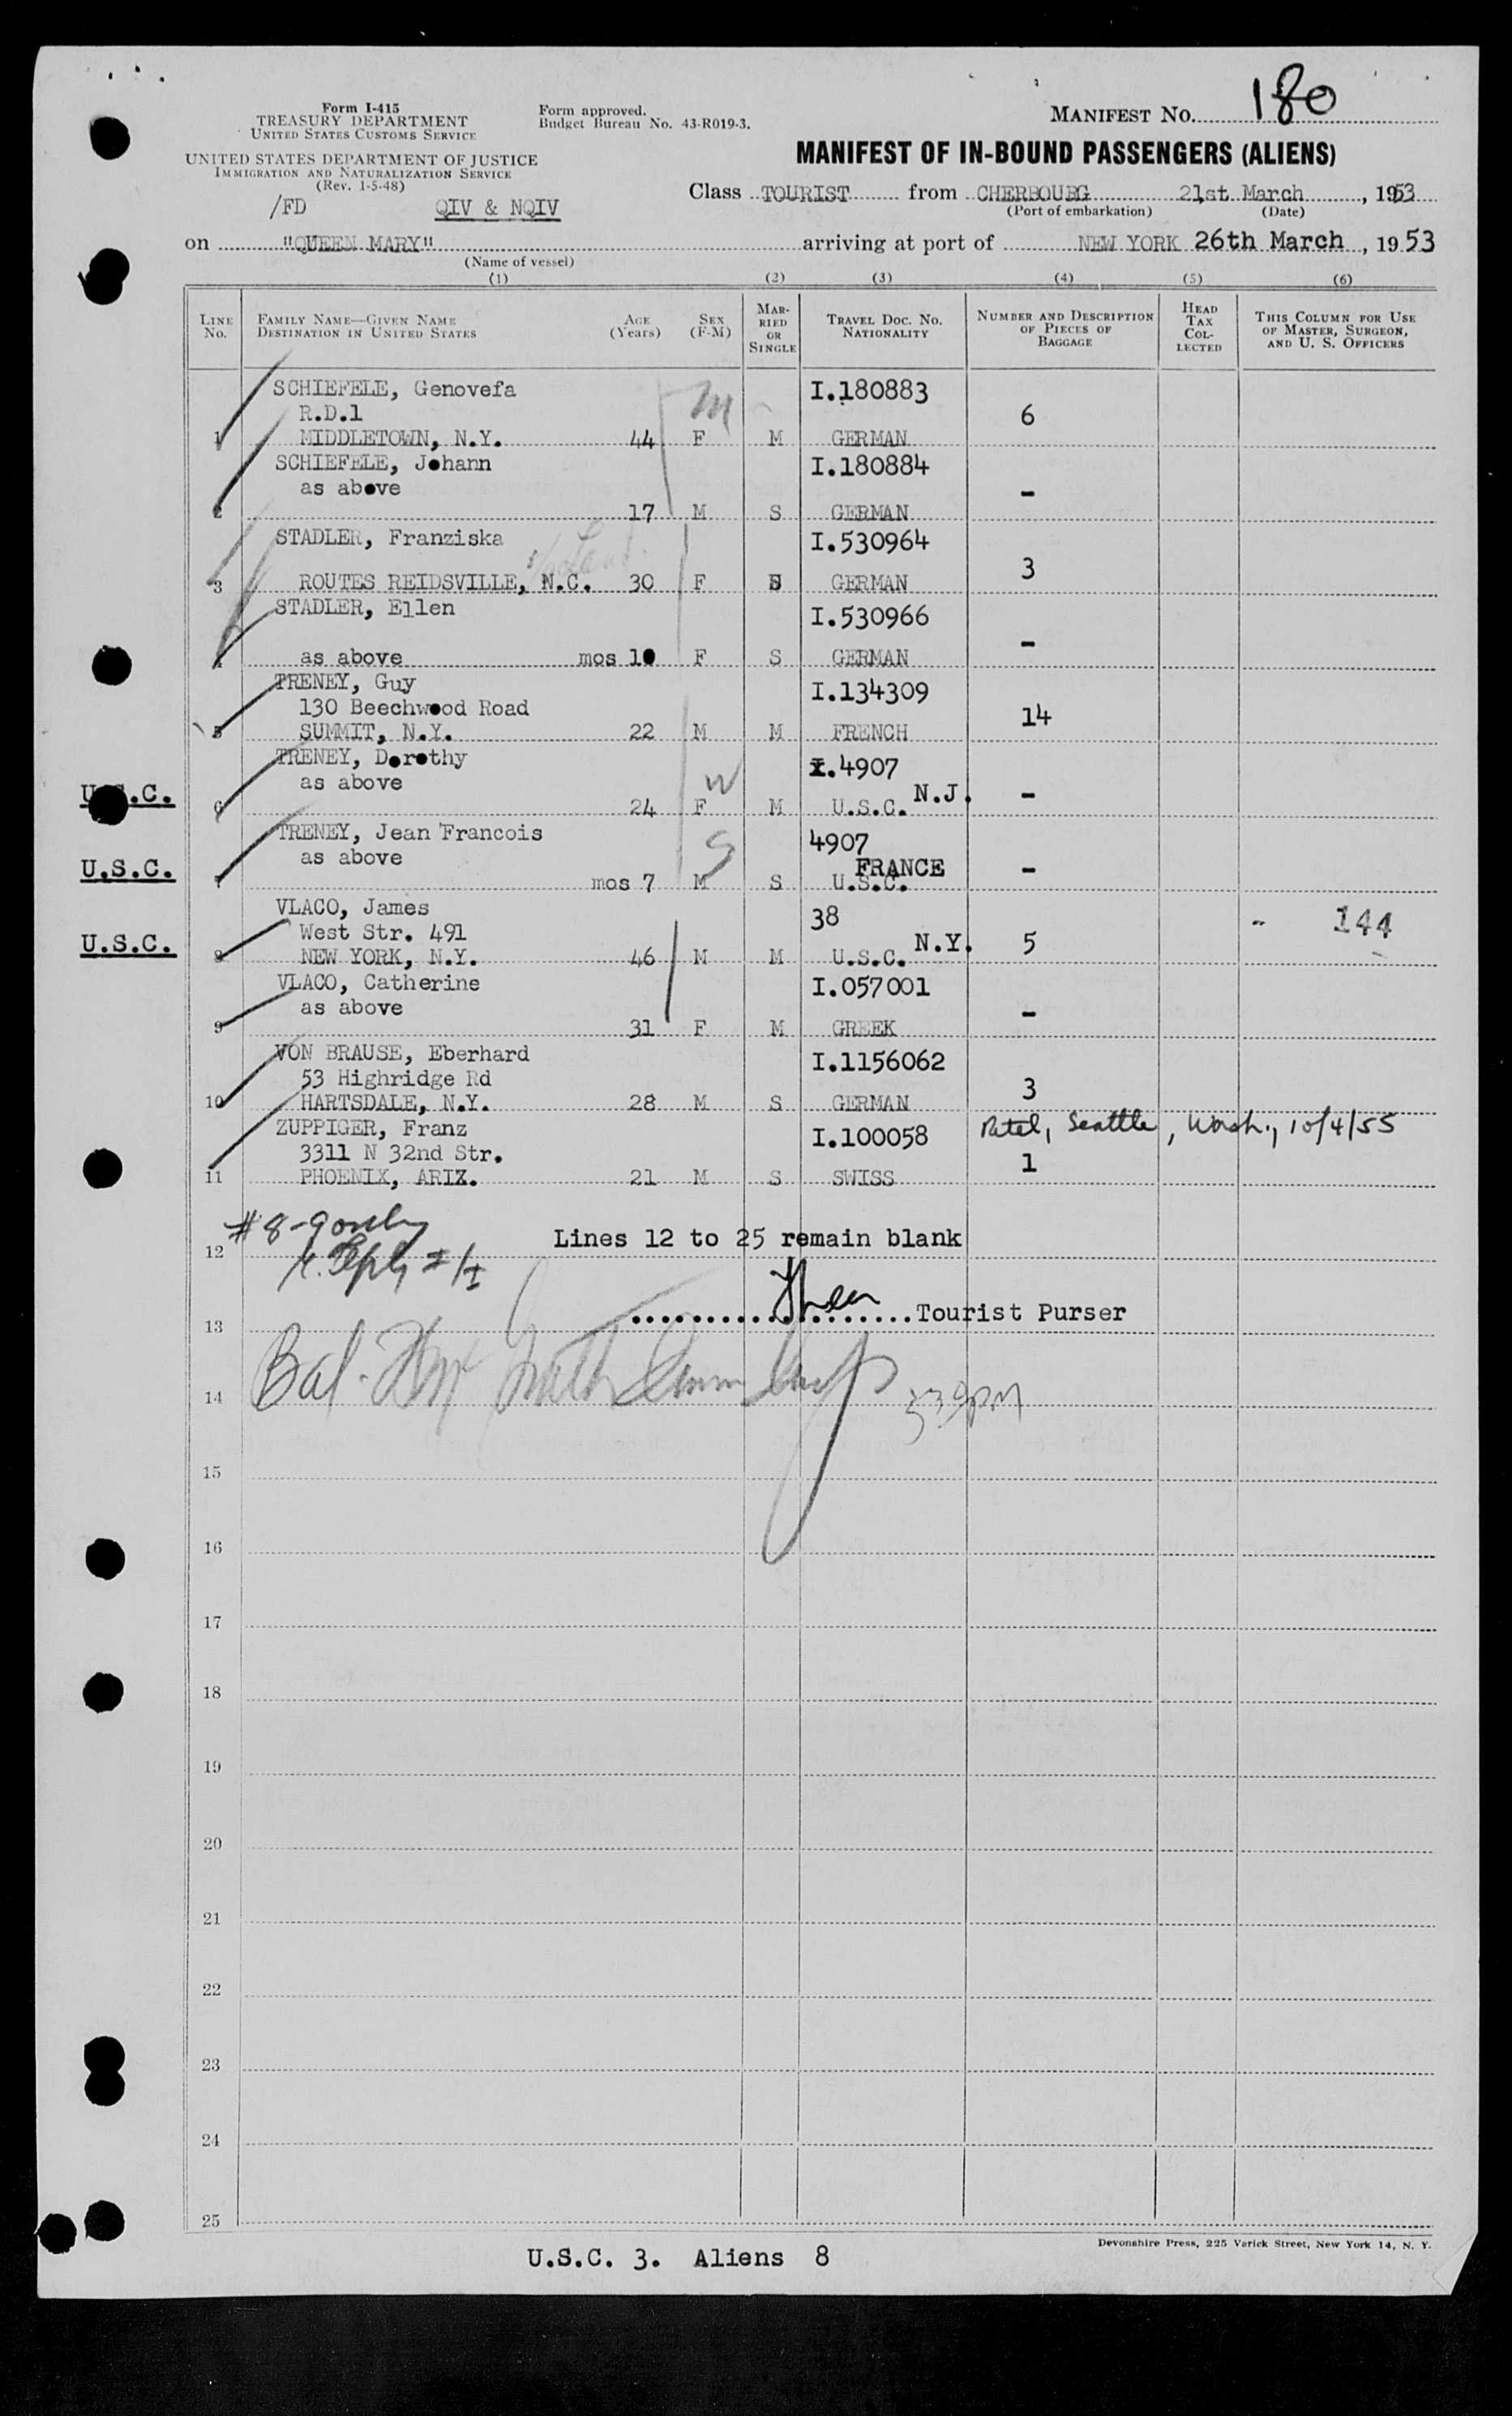 Form I-415
TREASURY DEPARTMENT
UNITED STATES CUSTOMS SERVICE
UNITED STATES DEPARTMENT OF JUSTICE
IMMIGRATION AND NATURALIZATION SERVICE
(Rev. 1-5-48)
Form approved.
Budget Bureau No. 43-R019-3.
MANIFEST NO. 180
MANIFEST OF IN-BOUND PASSENGERS (ALIENS)
/FD QIV & NQIV
Class TOURIST from CHERBOURG 21st March, 1953
(Port of embarkation) (Date)
on "QUEEN MARY" arriving at port of NEW YORK 26th March, 1953
(Name of vessel)
(1) (2) (3) (4) (5) (6)
LINE NO. FAMILY NAME—GIVEN NAME DESTINATION IN UNITED STATES AGE (Years) SEX (F-M) MARRIED OR SINGLE TRAVEL DOC. NO. NATIONALITY NUMBER AND DESCRIPTION OF PIECES OF BAGGAGE HEAD TAX COLLECTED THIS COLUMN FOR USE OF MASTER, SURGEON, AND U. S. OFFICERS
SCHIEFELE, Genovefa I.180883
R.D.1 6
1 MIDDLETOWN, N.Y. 44 F M GERMAN
SCHIEFELE, Johann I.180884
as above -
2 17 M S GERMAN
STADLER, Franziska I.530964
3 ROUTES REIDSVILLE, N.C. 30 F GERMAN 3
STADLER, Ellen I.530966
4 as above mos 10 F S GERMAN -
TRENEY, Guy I.134309
130 Beechwood Road 14
5 SUMMIT, N.Y. 22 M M FRENCH
TRENEY, Dorothy I.4907
U.S.C. as above N.J. -
6 24 F M U.S.C.
TRENEY, Jean Francois 4907
U.S.C. as above FRANCE -
7 mos 7 M S U.S.C.
VLACO, James 38 - 144
U.S.C. West Str. 491 N.Y. 5
8 NEW YORK, N.Y. 46 M M U.S.C.
VLACO, Catherine I.057001
as above -
9 31 F M GREEK
VON BRAUSE, Eberhard I.1156062
53 Highridge Rd 3
10 HARTSDALE, N.Y. 28 M S GERMAN
ZUPPIGER, Franz I.100058 Seattle, Wash., 10/4/55
3311 N 32nd Str. 1
11 PHOENIX, ARIZ. 21 M S SWISS
12 Lines 12 to 25 remain blank
13 Tourist Purser
14
15
16
17
18
19
20
21
22
23
24
25
Devonshire Press, 225 Varick Street, New York 14, N. Y.
U.S.C. 3. Aliens 8